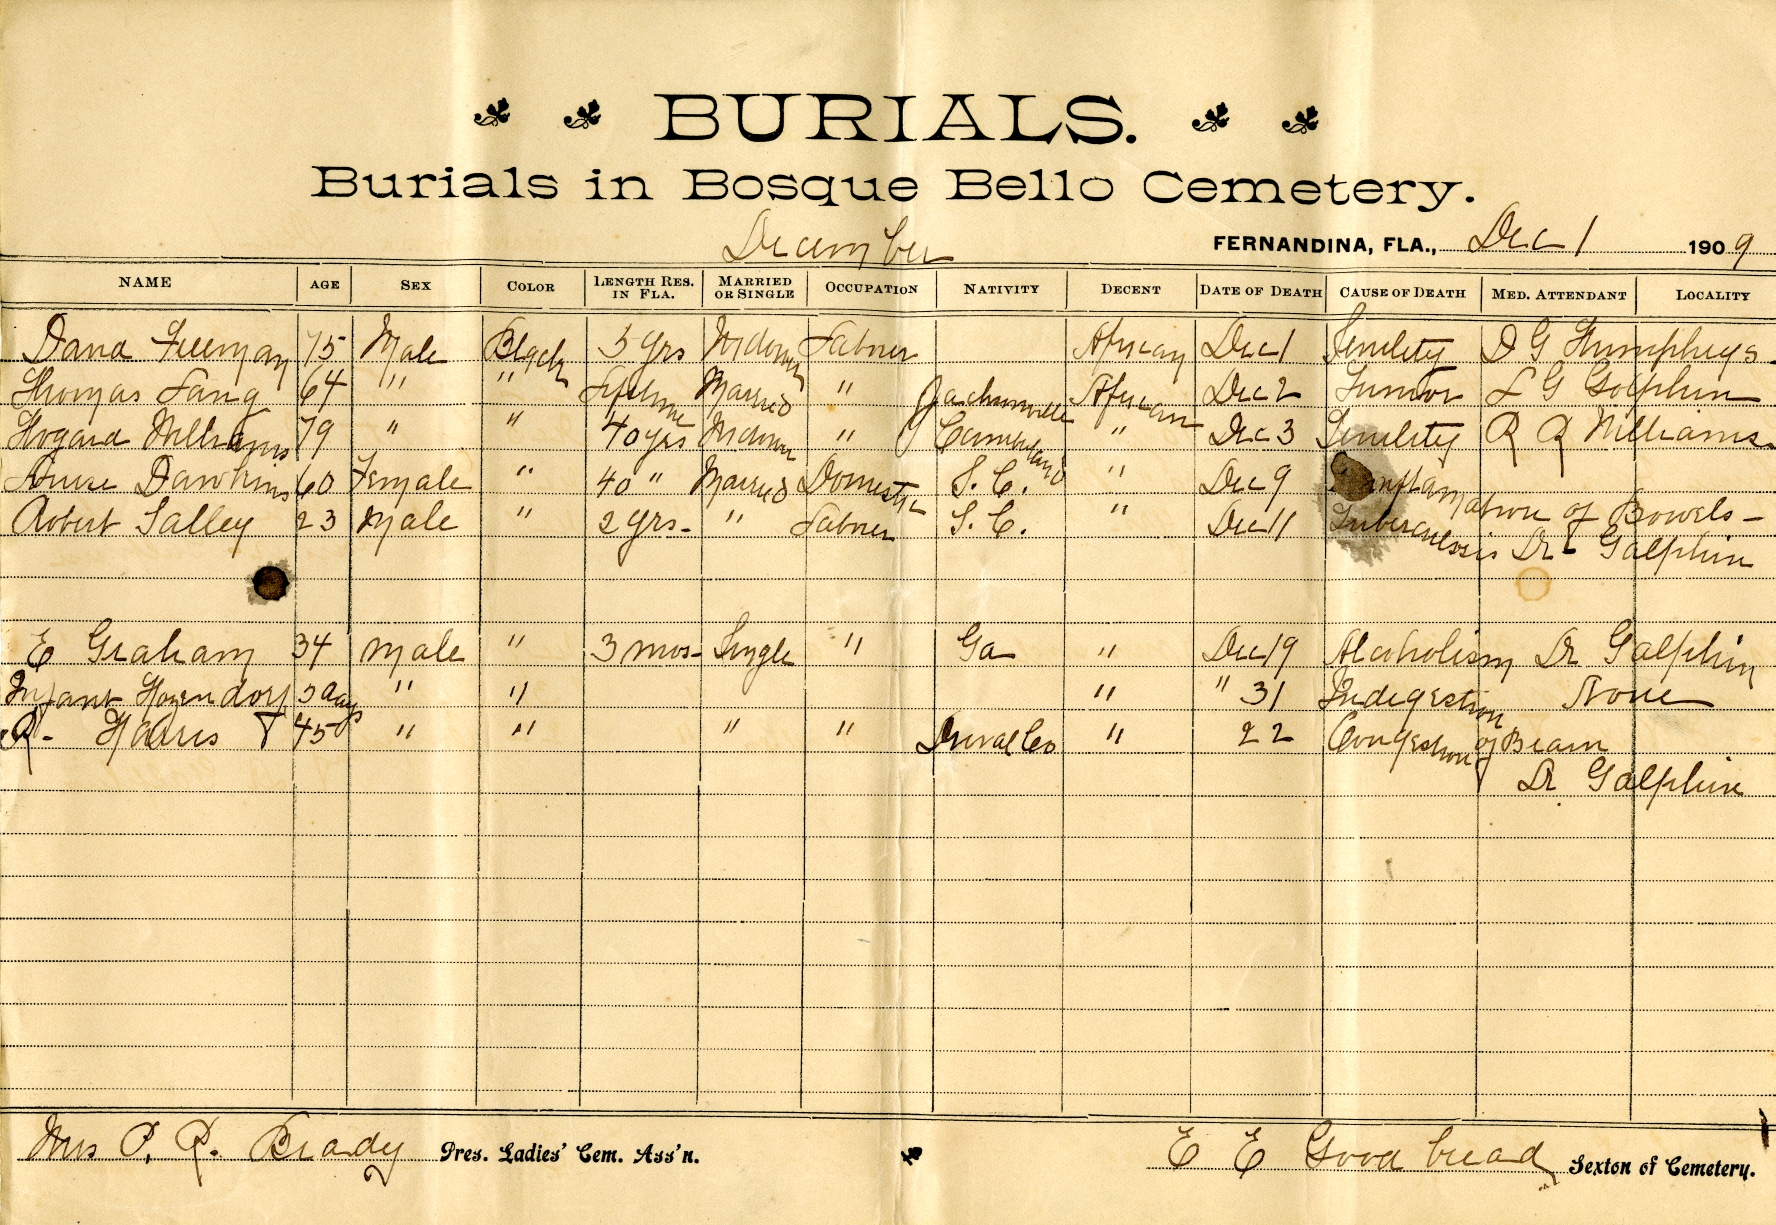 BURIALS.
Burials in Bosque Bello Cemetery.
December FERNANDINA, FLA., Dec 1 1909
NAME AGE SEX COLOR LENGTH RES. IN FLA. MARRIED OR SINGLE OCCUPATION NATIVITY DECENT DATE OF DEATH CAUSE OF DEATH MED. ATTENDANT LOCALITY
Freeman 75 Male Black 5 yrs Widower Laborer African Dec 1 Senility D G Humphreys
Thomas Lang 64 " " Lifetime Married " Jacksonville African Dec 2 Tumor L G Galphin
Williams 79 " " 40 yrs Widower " Cumberland " Dec 3 Senility R R Williams
Dawkins 60 Female " 40 " Married Domestic S. C. " Dec 9 Inflamation of Bowels -
Robert Salley 23 Male " 2 yrs - " Laborer S. C. " Dec 11 Tuberculosis Dr Galphin
E Graham 34 Male " 3 mos - Single " Ga " Dec 19 Alcoholism Dr Galphin
Infant Hozendorf 5 days " " " " 31 Indigestion None
R. Harris 45 " " " " Duval Co " 22 Congestion of Brain
Dr. Galphin
Mrs P. R. Brady Pres. Ladies' Cem. Ass'n. E E Goodbread Sexton of Cemetery.